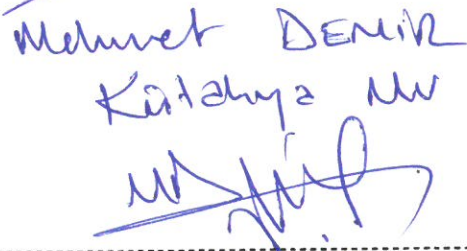 Mehmet DEMİR
Kütahya MV